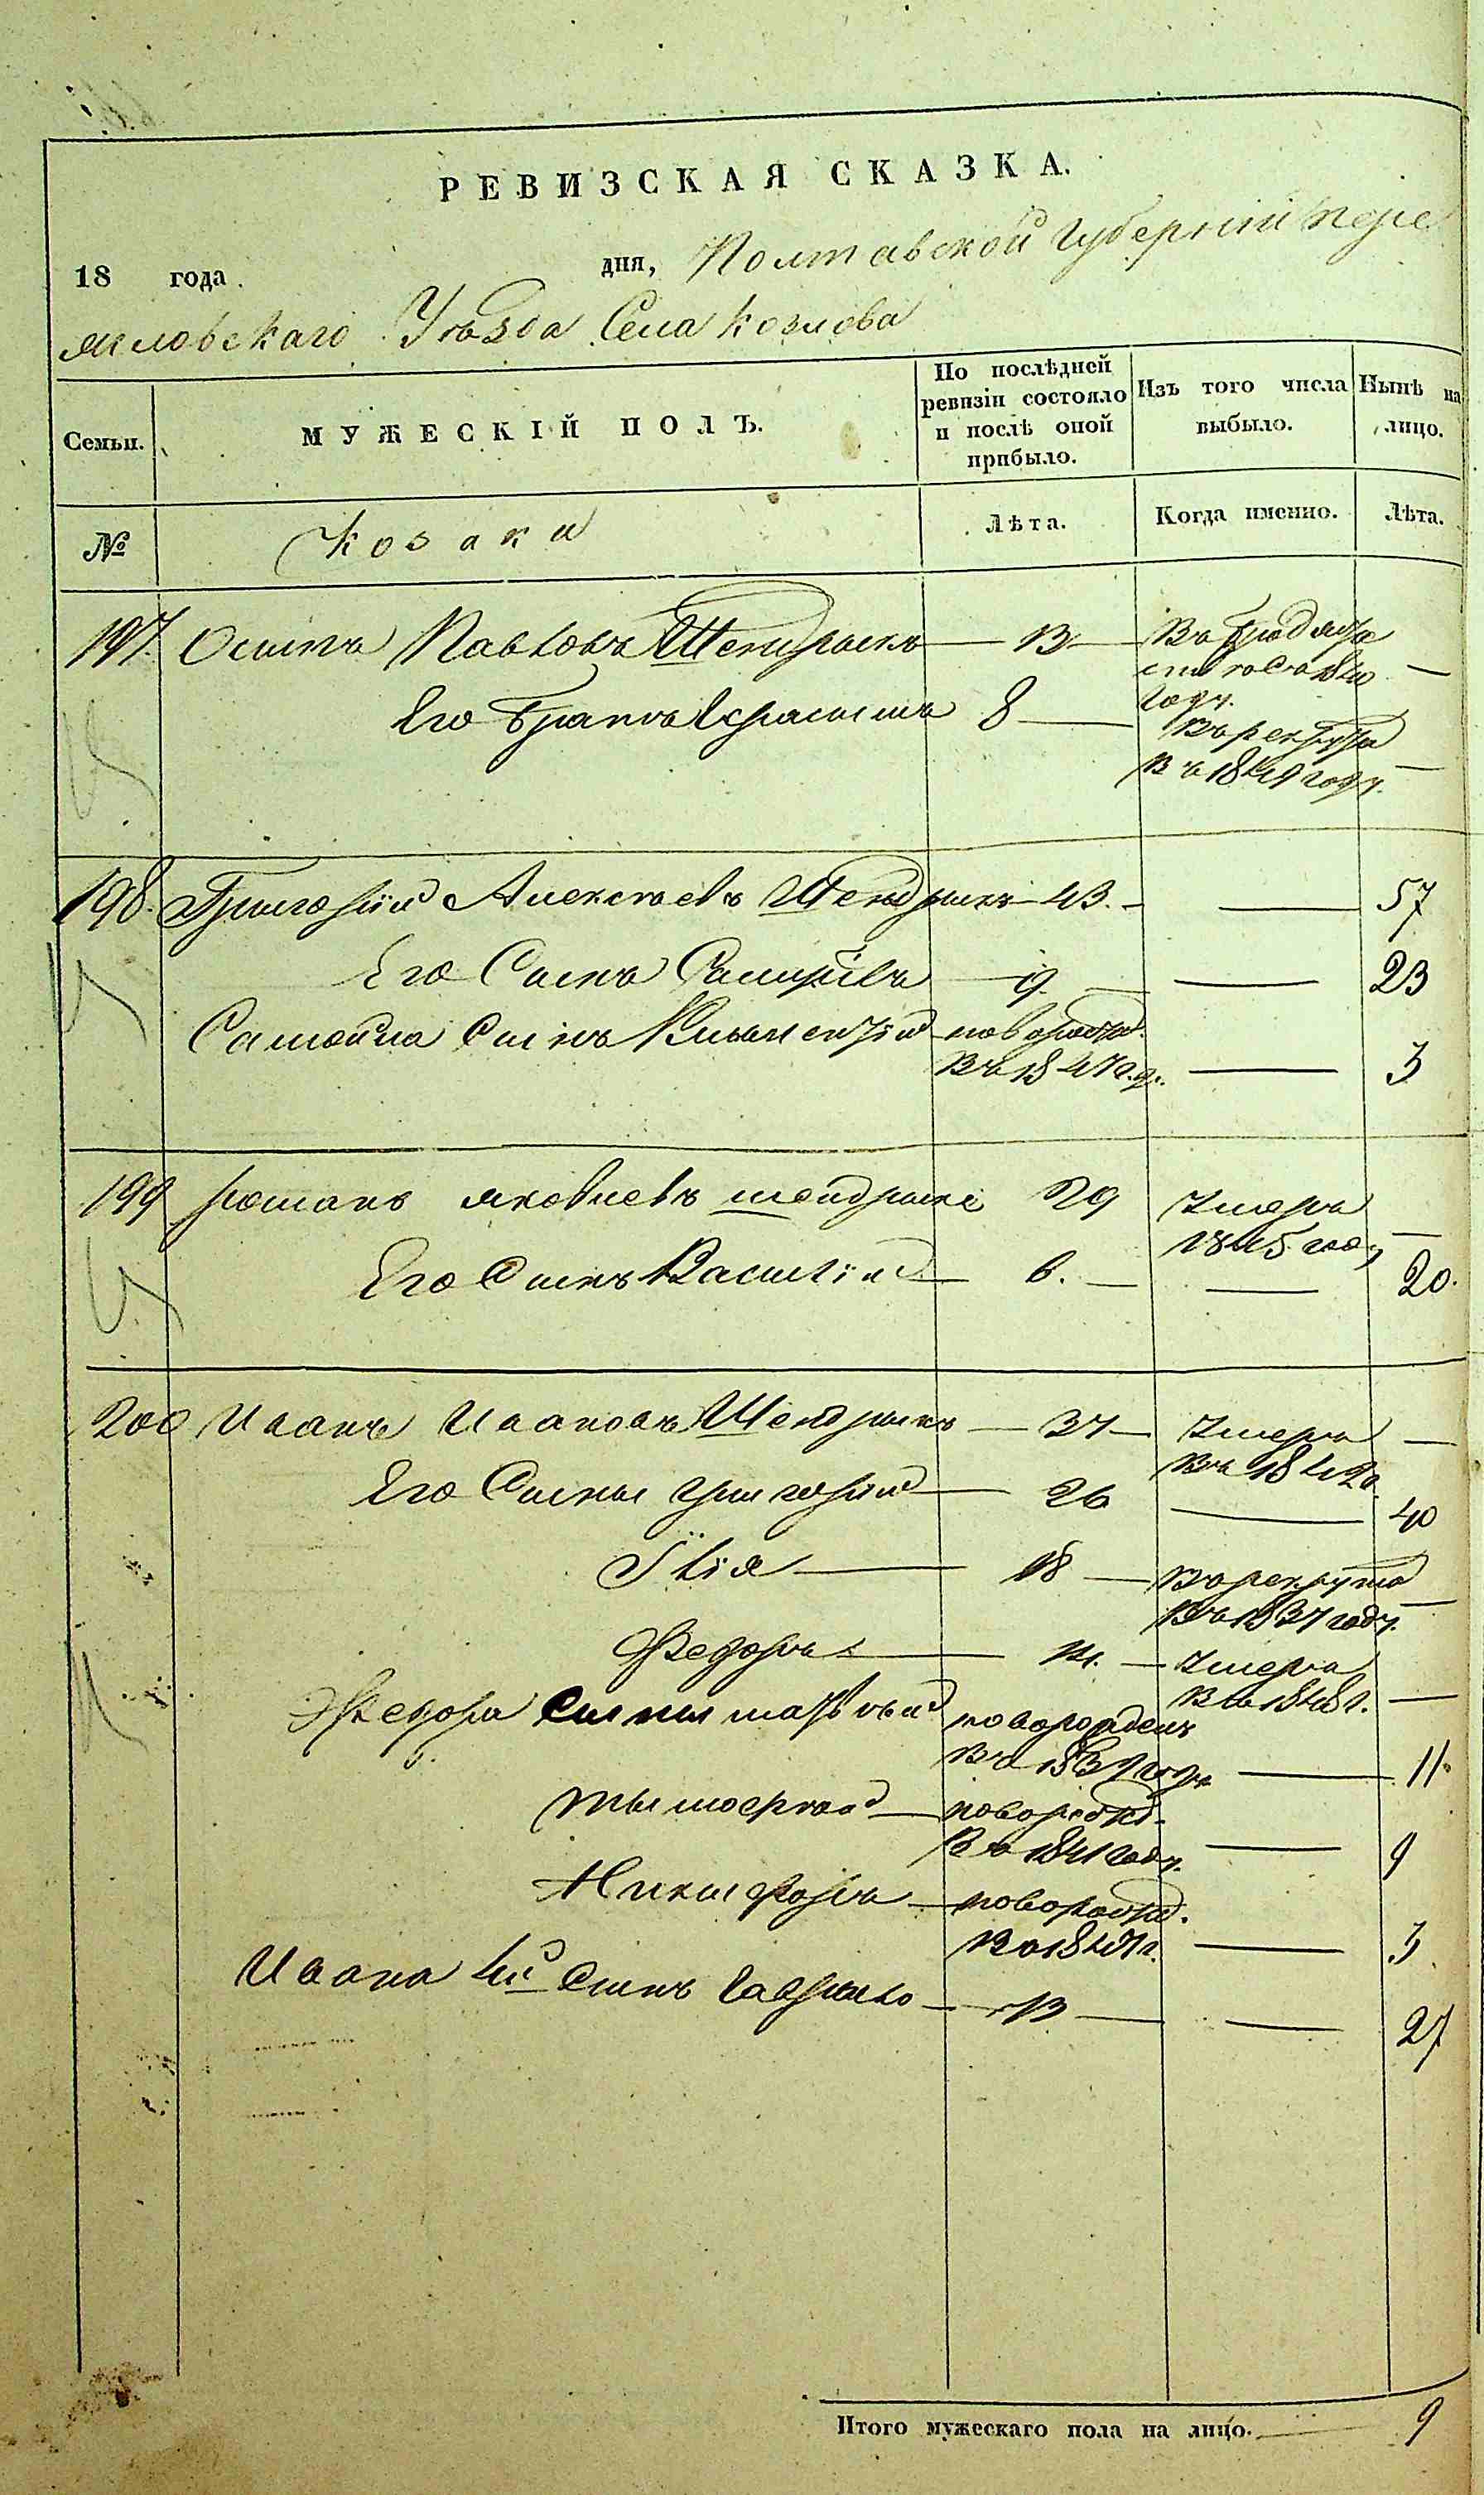 РЕВИЗСКАЯ СКАЗКА.
18 года дня, Полтавской Губерніи Перея
словскаго Уѣзда Села Козлова
Семьи. МУЖЕСКІЙ ПОЛЪ. По послѣдней ревизіи состояло и послѣ оной прибыло. Изъ того числа выбыло. Нынѣ на лицо.
№ Козаки Лѣта. Когда именно. Лѣта.
197. Осипъ Павловъ Шендрикъ — 13 — Въ бродяж
ствѣ съ 1840 —
году.
Его братъ Герасимъ 8 — Въ рекруты
въ 1849 году. —
198. Григорій Алексѣевъ Шендрикъ 43. — — 57
Его Сынъ Самуйлъ — 9. — — 23
Самойла Сынъ Климентій новорожд.
Въ 1847 г. — 3
199 Романъ Яковлевъ Шендрикъ 29 Умеръ
1845 год. —
Его Сынъ Василій — 6. — — 20.
200 Иванъ Ивановъ Шендрикъ — 37 — Умеръ —
Въ 184
Его Сыны Григорій — 26 — 40
Илія — 18 — Въ рекруты
Въ 1837 году. —
Федоръ — 14. — Умеръ
Въ 1848 г. —
Федора Сыны Матвѣй новорожденъ
Въ 1839 году — 11.
Тимофей — новорожд.
Въ 1841 году. — 9
Никифоръ — новорожд.
Въ 1847 г. — 3
Ивана 4й Сынъ Гаврило — 13 — — 27
Итого мужескаго пола на лицо. 9